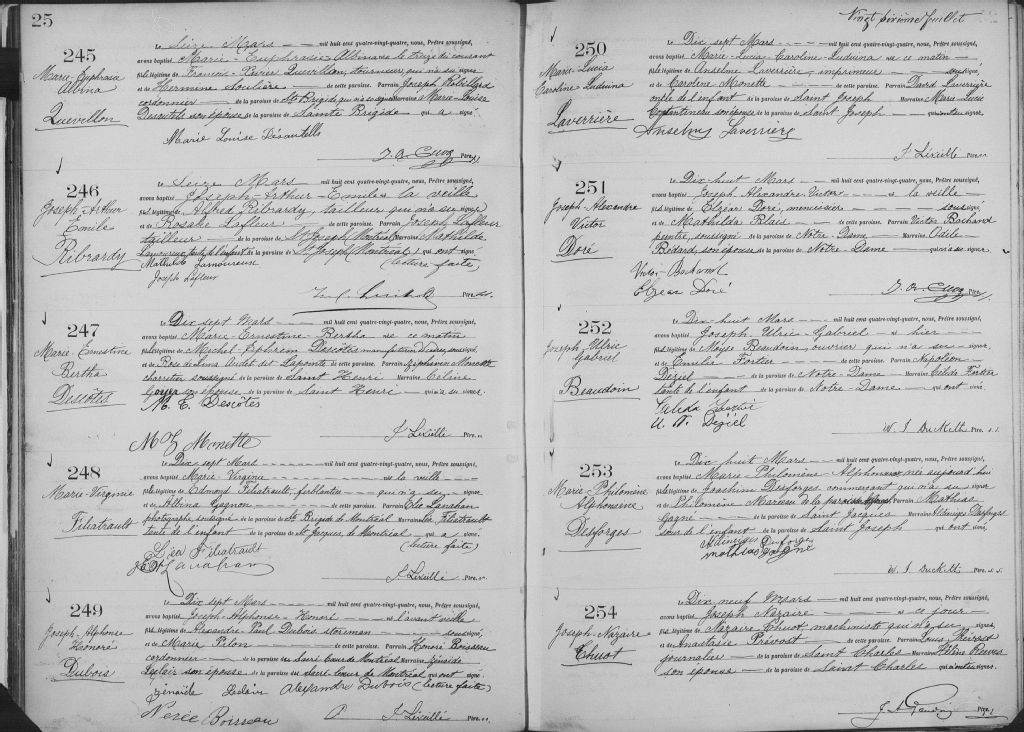 25
245
Marie-Euphrasie
Albina
Quevillon
Le Seize Mars mil huit cent quatre-vingt-quatre, nous, Prêtre soussigné,
avons baptisé Marie-Euphrasie Albina née le treize du courant
fille légitime de François-Xavier Quevillon, tourneur, qui n'a su signer
et de Hermine Soulière de cette paroisse. Parrain Joseph Robillard
cordonnier de la paroisse de Ste Brigide qui n'a su signer Marraine Marie-Louise
Désautels son épouse de la paroisse de Sainte Brigide qui a signé.
Marie Louise Désautels
Ptre.
246
Joseph-Arthur
Emile
Ribrardy
Le Seize Mars mil huit cent quatre-vingt-quatre, nous, Prêtre soussigné,
avons baptisé Joseph-Arthur-Emile né la veille
fils légitime de Alfred Ribrardy, tailleur qui n'a su signer
et de Rosalie Lafleur de cette paroisse. Parrain Joseph Lafleur
tailleur de la paroisse de St Joseph, Montréal, Marraine Mathilde
Lamoureux, tante de l'enfant de la paroisse de St Joseph, Montréal, qui ont signé
(lecture faite)
Mathilde Lamoureuse
Joseph Lafleur
Ptre.
247
Marie-Ernestine
Bertha
Descôtes
Le Dix sept Mars mil huit cent quatre-vingt-quatre, nous, Prêtre soussigné,
avons baptisé Marie-Ernestine Bertha née ce matin
fille légitime de Michel-Ephrem Descôtes manufacturier soussigné,
et de Rose de Lima Audet dit Lapointe de cette paroisse. Parrain Zéphirin Monette
charretier soussigné de la paroisse de Saint Henri Marraine Céline
son épouse de la paroisse de Saint Henri qui n'a su signer.
M. E. Descôtes
Monette
J. Lévillé Ptre.
248
Marie-Virginie
Filiatrault
Le Dix sept Mars mil huit cent quatre-vingt-quatre, nous, Prêtre soussigné,
avons baptisé Marie-Virginie née la veille
fille légitime de Edmond Filiatrault, ferblantier qui n'a su signer
et de Albina Gagnon de cette paroisse. Parrain Lanahan
photographe, soussigné de la paroisse de St Brigide de Montréal Marraine Léa Filiatrault
tante de l'enfant de la paroisse de St Jacques, de Montréal qui a signé
(lecture faite)
Léa Filiatrault
Lanahan
J. Lévillé Ptre.
249
Joseph-Alphonse
Honoré
Dubois
Le Dix sept Mars mil huit cent quatre-vingt-quatre, nous, Prêtre soussigné,
avons baptisé Joseph-Alphonse-Honoré né l'avant veille
fils légitime de Alexandre-Paul Dubois storeman soussigné,
et de Marie Pilon de cette paroisse. Parrain Honoré Boisseau
cordonnier de la paroisse du Sacré Coeur de Montréal Marraine Zénaïde
Leclair son épouse de la paroisse du Sacré-Coeur de Montréal qui ont signé
Zénaïde Leclair Alexandre Dubois (lecture faite)
Boisseau J. Lévillé Ptre.
Vingt sixième Juillet
250
Marie-Lucia
Caroline-Luduina
Laverrière
Le Dix sept Mars mil huit cent quatre-vingt-quatre, nous, Prêtre soussigné,
avons baptisé Marie-Lucia-Caroline-Luduina née ce matin
fille légitime de Anselme Laverrière, imprimeur soussigné,
et de Caroline Monette de cette paroisse. Parrain David Laverrière
oncle de l'enfant de la paroisse de Saint Joseph Marraine Marie-Lucie
son épouse de la paroisse de Saint Joseph qui
Anselme Laverrière
J. Lévillé Ptre.
251
Joseph-Alexandre
Victor
Doré
Le Dix-huit Mars mil huit cent quatre-vingt-quatre, nous, Prêtre soussigné,
avons baptisé Joseph Alexandre-Victor né la veille
fils légitime de Elzéar Doré, menuisier soussigné,
et de Mathilda Blais de cette paroisse. Parrain Victor Bachand
peintre, soussigné de la paroisse de Notre-Dame Marraine Odile
Bédard, son épouse de la paroisse de Notre-Dame qui n'a su signer
Victor Bachand
Elzéar Doré
Ptre.
252
Joseph-Ulric
Gabriel
Beaudoin
Le Dix-huit Mars mil huit cent quatre-vingt-quatre, nous, Prêtre soussigné,
avons baptisé Joseph-Ulric-Gabriel né hier
fils légitime de Moyse Beaudoin, ouvrier qui n'a su signer
et de Emilia Fortier de cette paroisse. Parrain Napoléon
Déziel de la paroisse de Notre-Dame Marraine Célida Fortier
tante de l'enfant de la paroisse de Notre-Dame qui ont signé.
Célida Fortier
Déziel
W. J. Duckett Ptre.
253
Marie-Philomène
Alphonsine
Desforges
Le Dix huit Mars mil huit cent quatre-vingt-quatre, nous, Prêtre soussigné,
avons baptisé Marie-Philomène-Alphonsine née aujourd'hui
fille légitime de Joachim Desforges commerçant qui n'a su signer
et de Philomène Marceau de la paroisse Parrain Mathias
Gagné de la paroisse de Saint Jacques Marraine Desforges
soeur de l'enfant de la paroisse de Saint Joseph qui ont signé.
Desforges
Mathias Gagné
W. J. Duckett Ptre.
254
Joseph-Nazaire
Chuot
Le Dix-neuf Mars mil huit cent quatre-vingt-quatre, nous, Prêtre soussigné,
avons baptisé Joseph Nazaire né ce jour
fils légitime de Nazaire Chuot machiniste qui n'a su signer
et de Anastasie Prévost de cette paroisse. Parrain Louis
journalier de la paroisse de Saint Charles Marraine Hélène
son épouse de la paroisse de Saint Charles qui
Ptre.